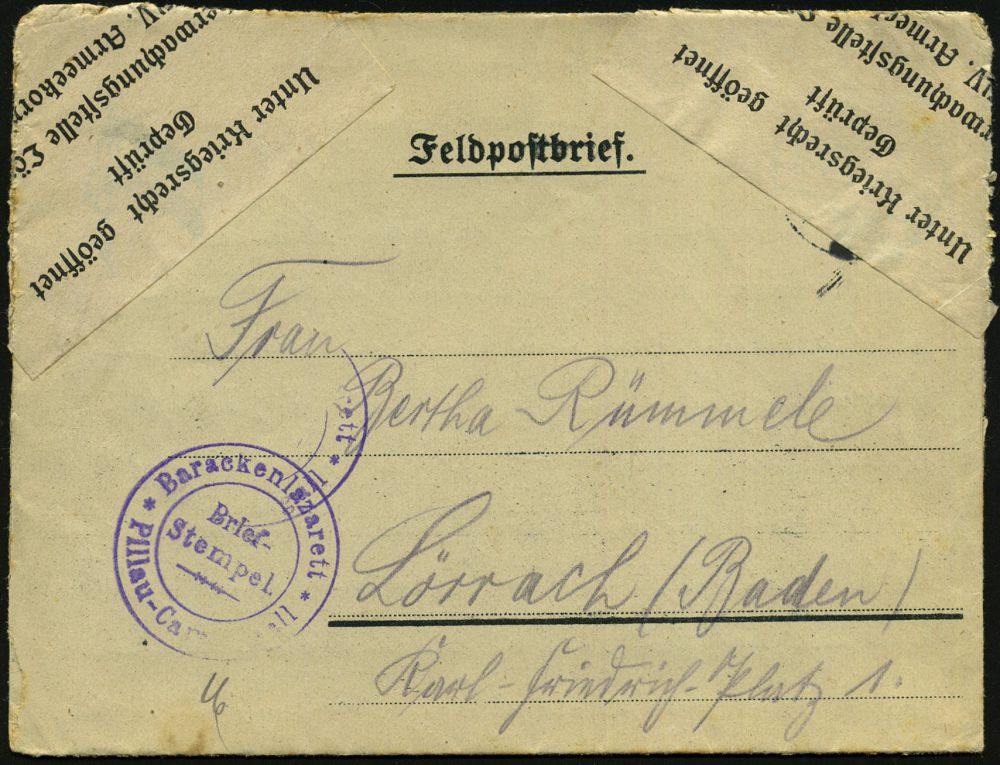 Unter Kriegsrecht geöffnet
Geprüft
Armeekor
Unter Kriegsrecht geöffnet
Geprüft
V. Armee
Feldpostbrief.
Frau
Bertha Rümmele
Lörrach (Baden)
Karl-Friedrich-Platz 1.
* Barackenlazarett *
Pillau-Cam
Brief-
Stempel
ett *